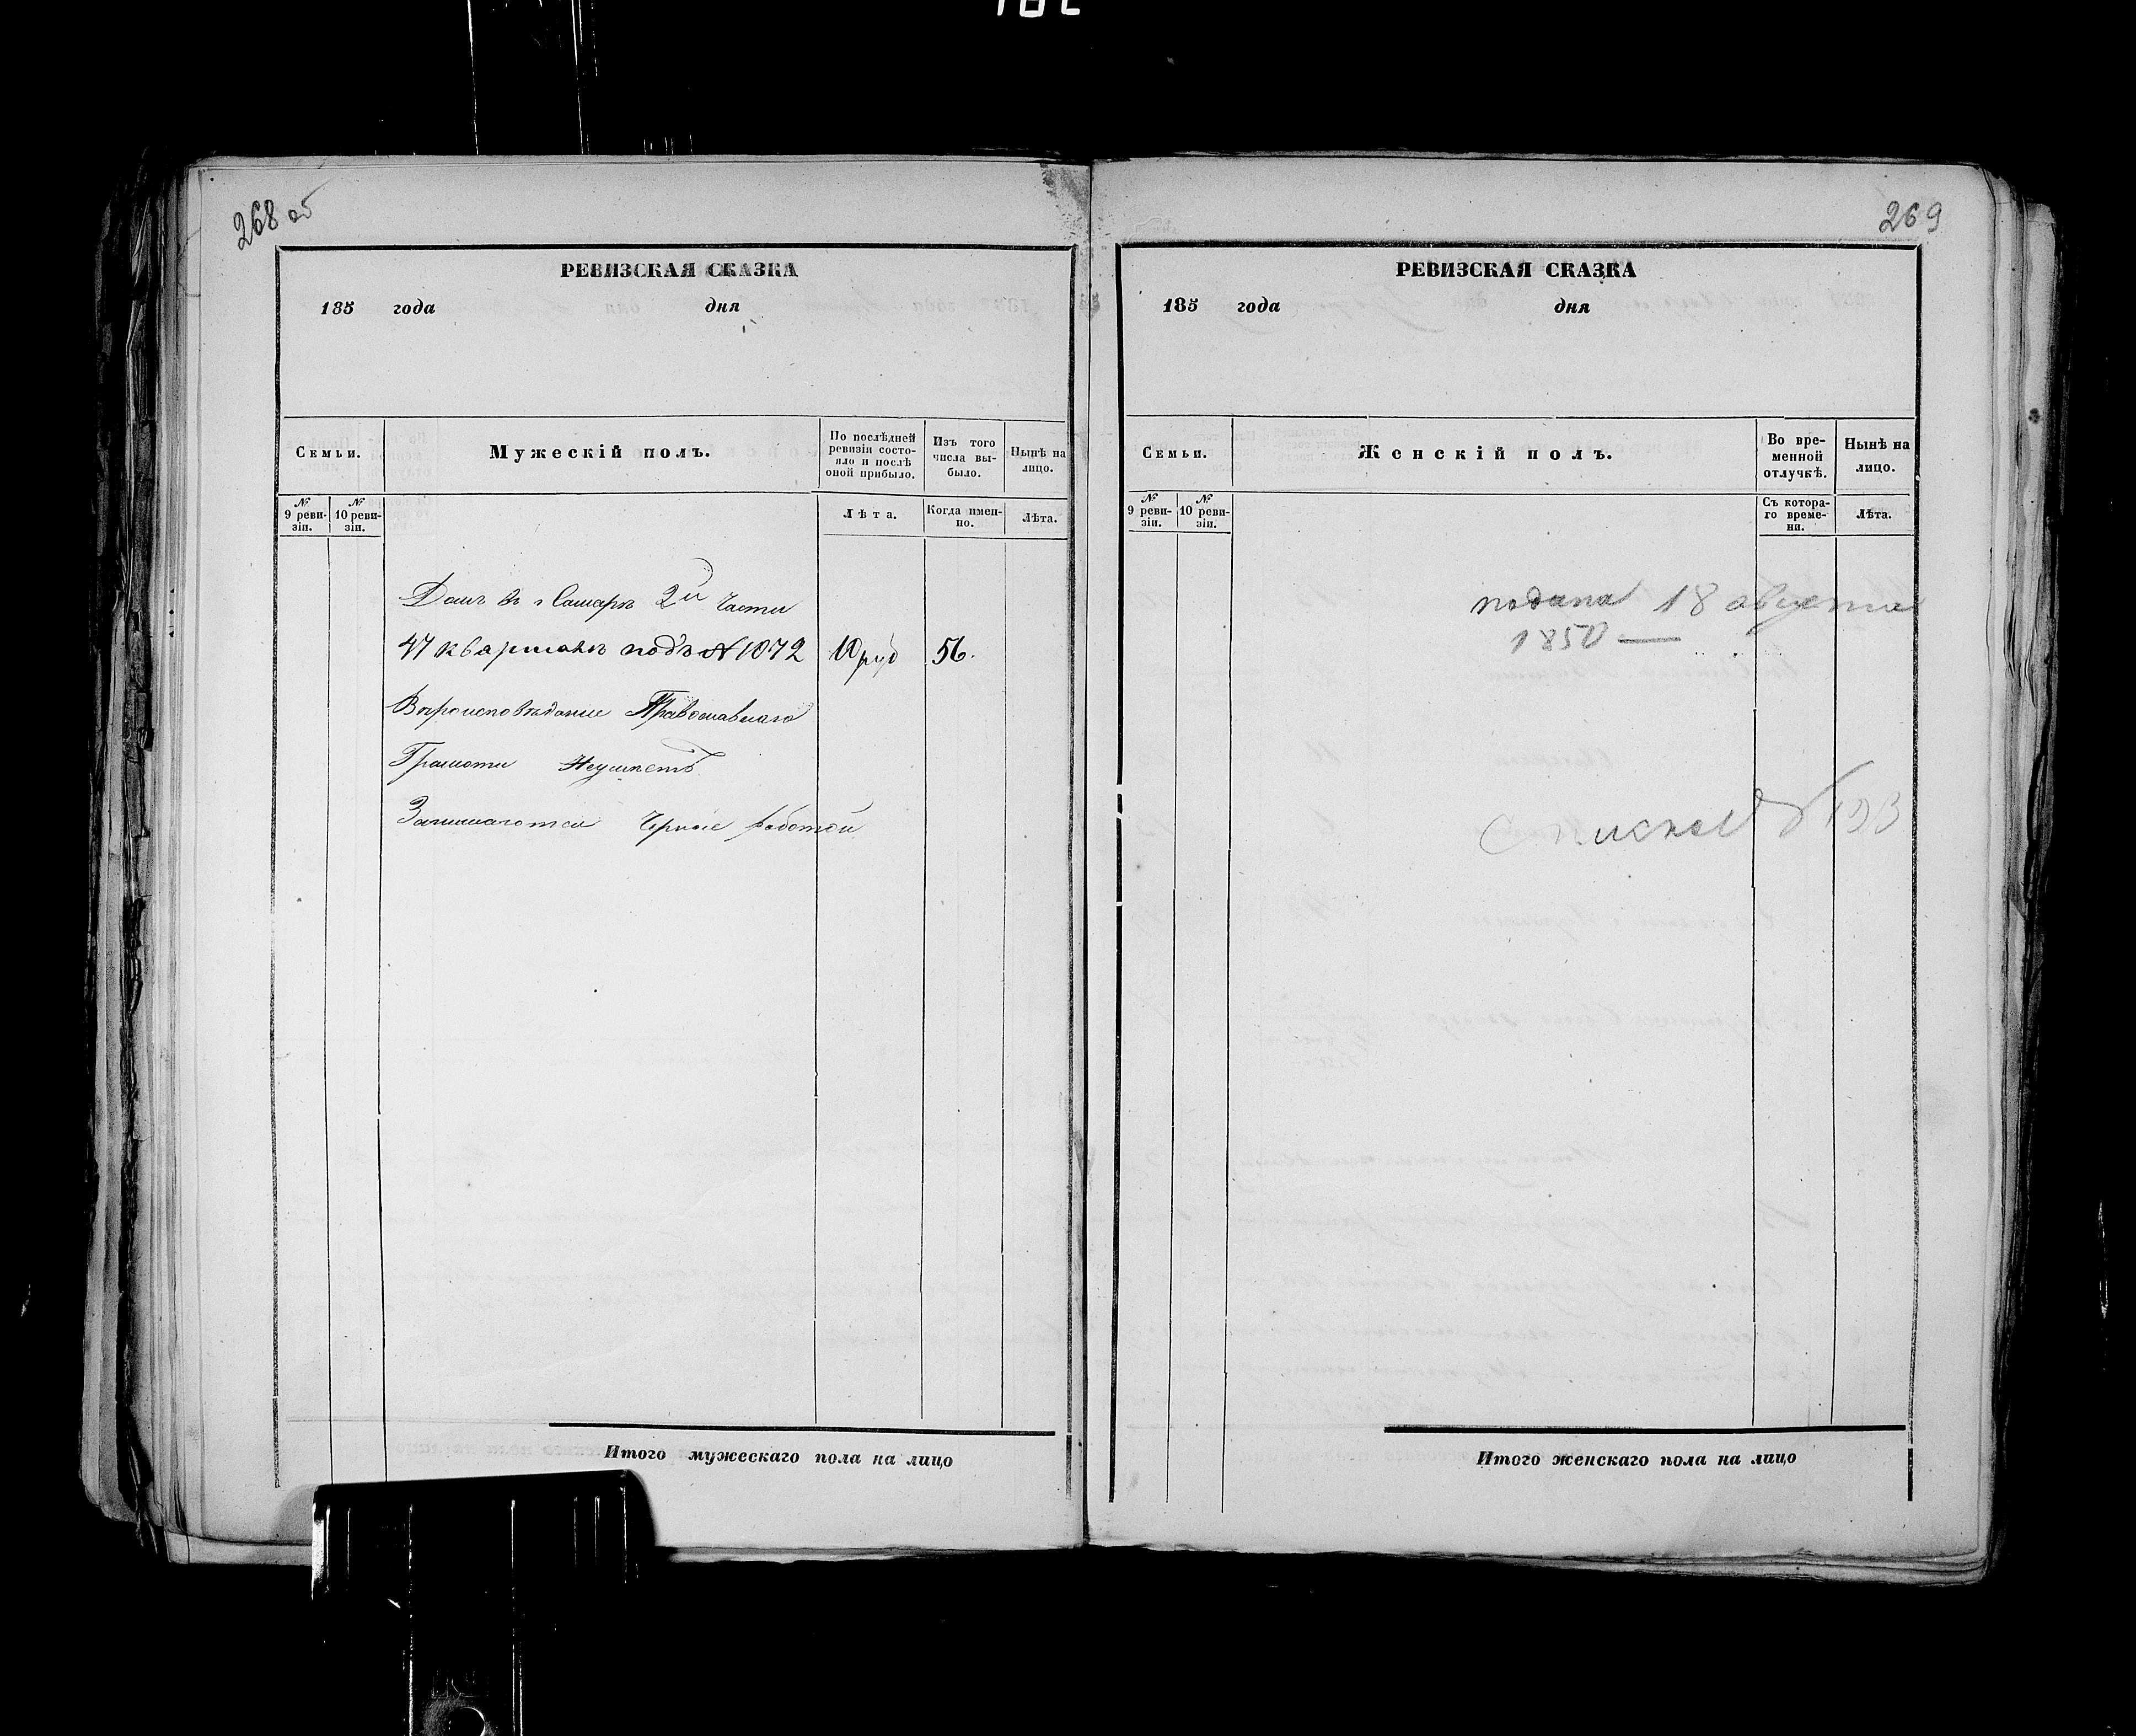 268 об
РЕВИЗСКАЯ СКАЗКА
185 года дня
Семьи.
Мужескій полъ.
По послѣдней ревизіи состояло и послѣ оной прибыло.
Изъ того числа выбыло.
Нынѣ на лицо.
№ 9 ревизіи.
№ 10 ревизіи.
Лѣта.
Когда именно.
Лѣта.
Домъ въ г Самарѣ 2й части
47 кварталѣ подъ № 1072 10 руб 56.
Вѣроисповѣданіе Православнаго
Грамоти Неумѣетъ
Занимаются Чорнае работой
Итого мужескаго пола на лицо
269
РЕВИЗСКАЯ СКАЗКА
185 года дня
Семьи.
Женскій полъ.
Во временной отлучкѣ.
Нынѣ на лицо.
№ 9 ревизіи.
№ 10 ревизіи.
Съ котораго времени.
Лѣта.
подана 18 августа
1850 —
Итого женскаго пола на лицо